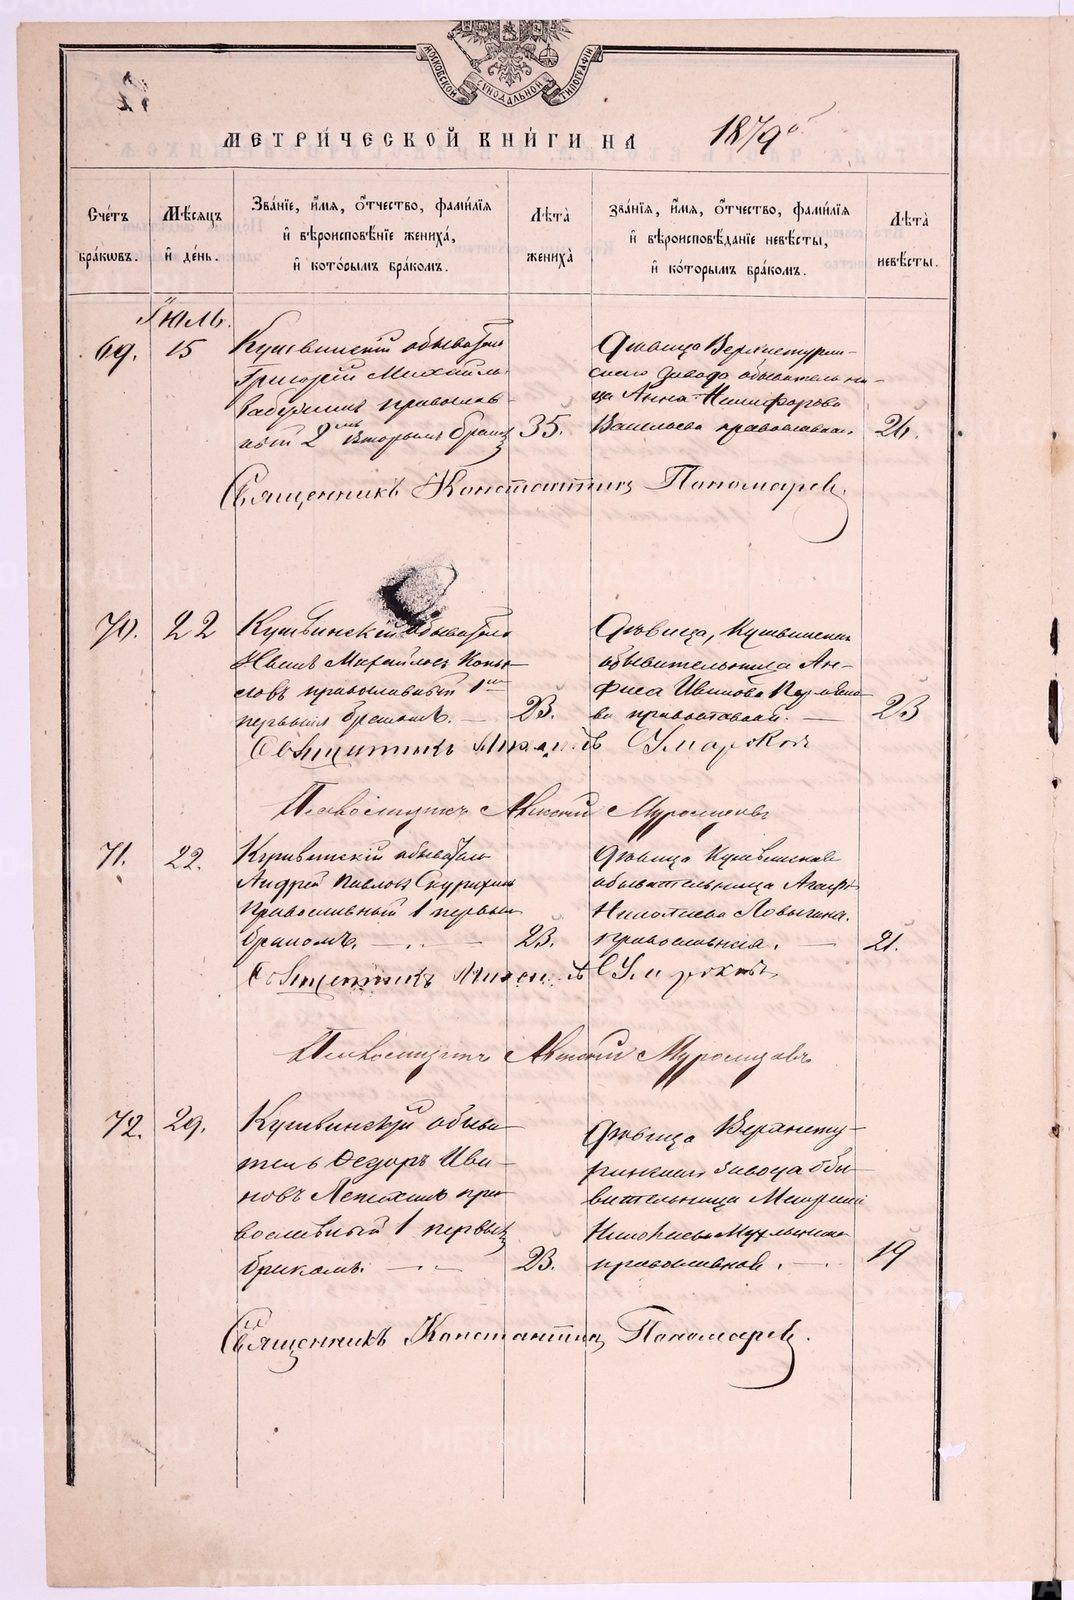 МОСКОВСКОЙ СѴНОДАЛЬНОЙ ТИПОГРАФІИ
МЕТРИ́ЧЕСКОЙ КНИ́ГИ НА 1879
Сче́тъ бра́кωвъ.
Мѣ́сяцъ и҆ де́нь.
Зва́нїе, и҆́мя, ѻ҆́тчество, фами́лїя
и҆ вѣроисповѣ́нїе жениха̀,
и҆ кото́рымъ бра́комъ.
Лѣта̀ жениха̀
зва́нїя, и҆́мя, ѻ҆́тчество, фами́лїя
и҆ вѣроисповѣ́данїе невѣ́сты,
и҆ кото́рымъ бра́комъ.
Лѣта̀ невѣ́сты.
Іюль.
69. 15
Кушвинскій обыватель
Григорій Михайлъ
православ-
ный 2 вторымъ бракомъ
35.
Дѣвица Верхнетурин-
скаго завода обывательни-
ца Анна Никифорова
Васильева православная.
26.
Священникъ Константинъ Пономаревъ.
70. 22
Кушвинскій обыватель
Иванъ Михайловъ Копы-
ловъ православный 1
первымъ бракомъ.
23.
Дѣвица, Кушвинская
обывательница Ан-
фиса Иванова
ва православной.
23
Священникъ Михаилъ
Псаломщикъ Алексій Муромцовъ
71. 22.
Кушвинскій обыватель
Андрей Павловъ Скурихинъ
Православный 1 первымъ
бракомъ.
23.
Дѣвица Кушвинская
обывательница Агафья
Николаева Ловыгина.
православная.
21.
Священникъ Михаилъ
Псаломщикъ Алексій Муромцовъ
72. 29.
Кушвинскій обыва-
тель Ѳедоръ Ива-
новъ Лепихинъ пра-
вославный 1 первымъ
бракомъ.
23.
Дѣвица Верхнету-
ринскаго завода обы-
вательница
православной.
19
Священникъ Константинъ Пономаревъ.
METRIKI.GASO-URAL.RU